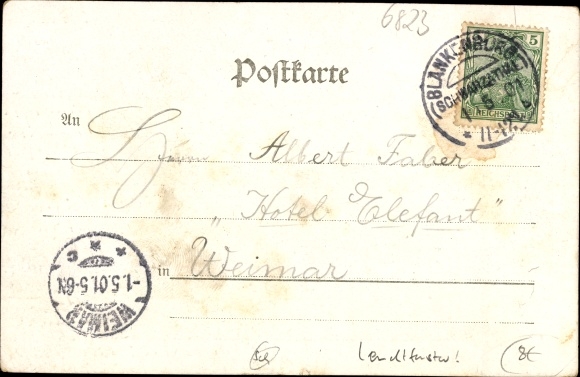 6823
Postkarte
5
REICHSPOST
BLANKENBURG
SCHWARZATHAL
1 5 01
11-12
An
Herrn Albert Faber
„Hotel Elefant"
in Weimar
WEIMAR
-1.5.01.5-6N
c
Leuchtfenster!
8€